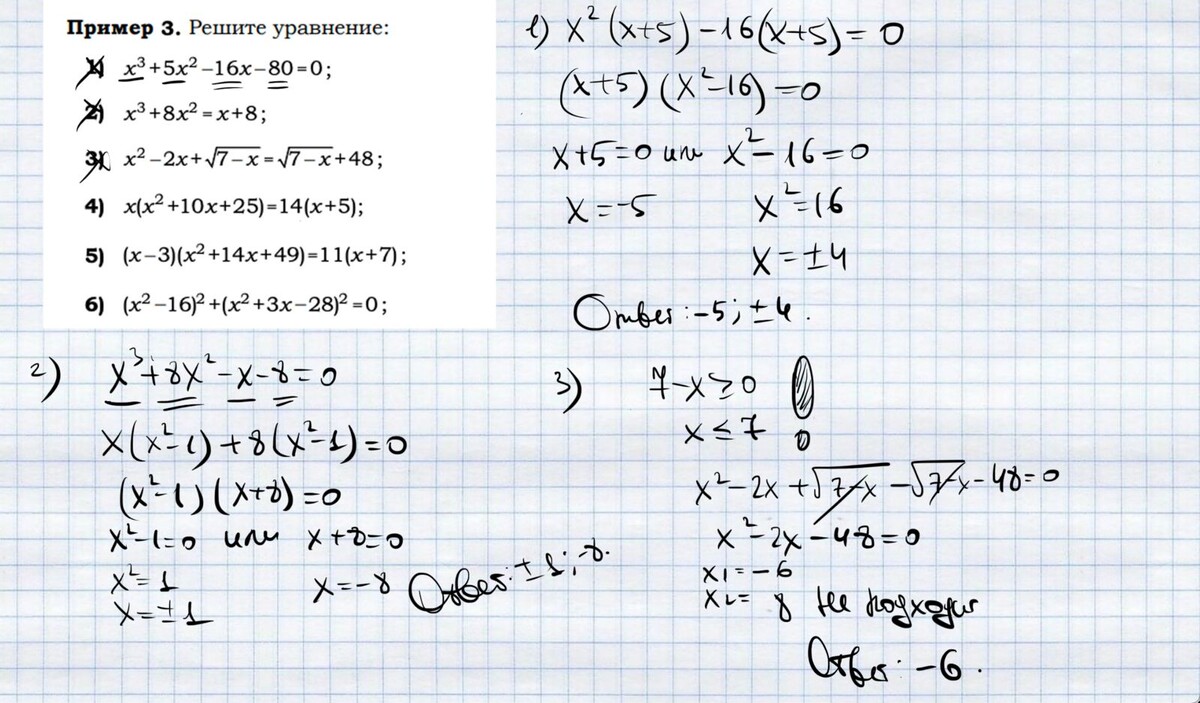 Пример 3. Решите уравнение:
1) x³+5x²−16x−80=0;
2) x³+8x²=x+8;
3) x²−2x+√7−x=√7−x+48;
4) x(x²+10x+25)=14(x+5);
5) (x−3)(x²+14x+49)=11(x+7);
6) (x²−16)²+(x²+3x−28)²=0;
1) x²(x+5)−16(x+5)=0
(x+5)(x²−16)=0
x+5=0 или x²−16=0
x=−5 x²=16
x=±4
Ответ: −5; ±4.
2) x³+8x²−x−8=0
x(x²−1)+8(x²−1)=0
(x²−1)(x+8)=0
x²−1=0 или x+8=0
x²=1 x=−8
x=±1
Ответ: ±1; −8.
3) 7−x≥0 !
x≤7
x²−2x+√7−x−√7−x−48=0
x²−2x−48=0
x1=−6
x2=8 не подходит
Ответ: −6.